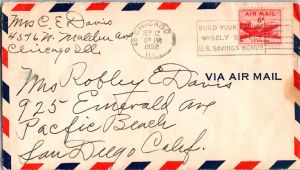 Mrs C. E. Davis
4576 N. Malden Ave
Chicago Ill.
CHICAGO
SEP 12
1952
ILL.
BUILD YOUR
WISELY
U.S. SAVINGS BONDS
AIR MAIL
6¢
VIA AIR MAIL
Mrs Robley E Davis
925 Emerald Ave
Pacific Beach
San Diego Calif.